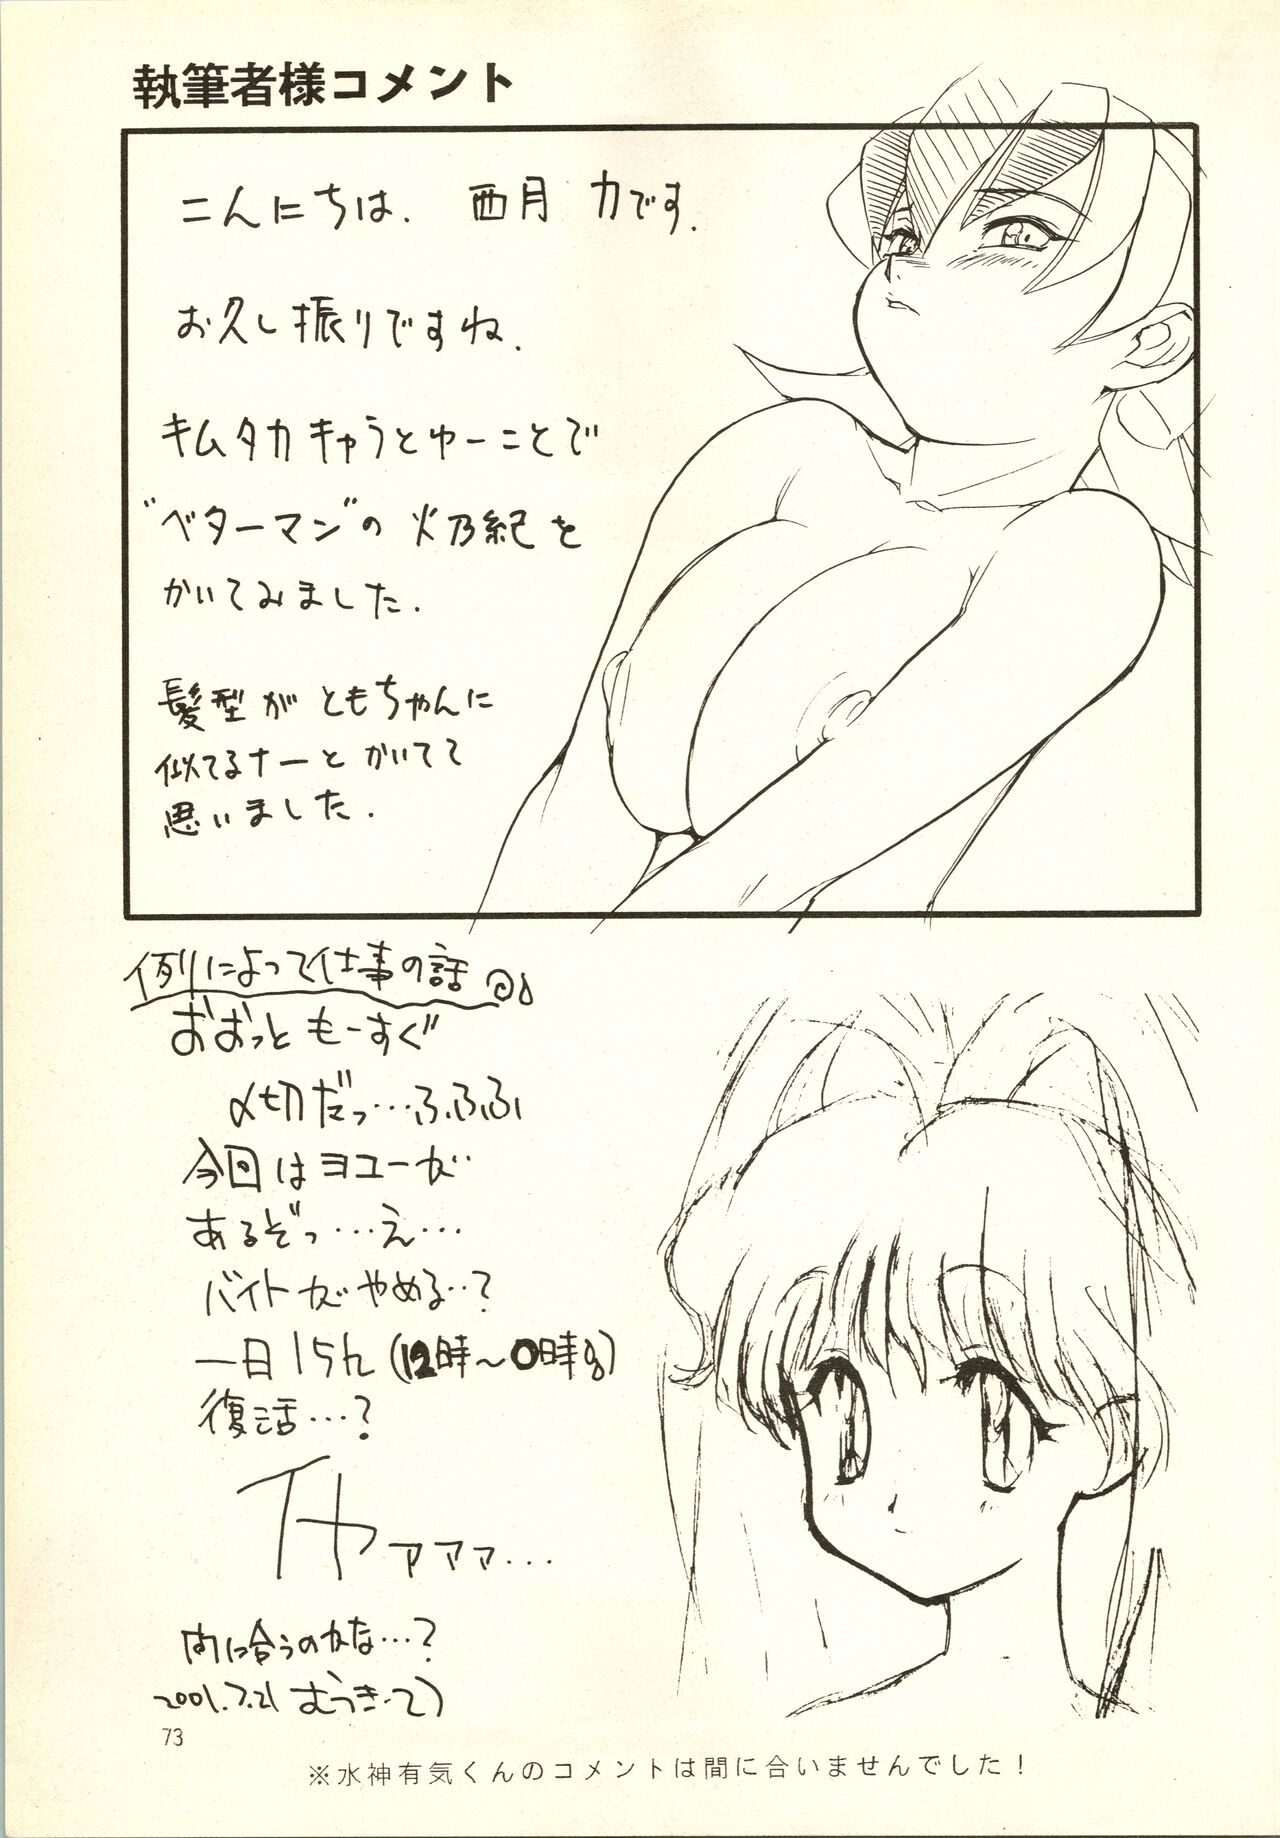 執筆者様コメント
こんにちは. 西月 力です.
お久し振りですね.
キムタカキャラとゆーことで
"ベターマン"の 火乃紀を
かいてみました.
髪型が ともちゃんに
似てるナーと かいてて
思いました.
例によって仕事の話
おおっと もーすぐ
〆切だっ…ふふふ
今回はヨユーが
あるぞっ…え…
バイトがやめる…?
一日15h (12時〜0時
復活…?
イヤァァァ…
間に合うのかな…?
2001.7.21 むつき
73
※水神有気くんのコメントは間に合いませんでした！